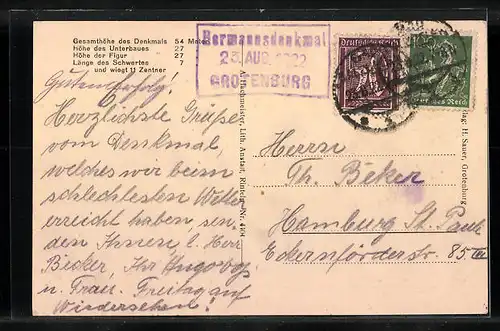 Gesamthöhe des Denkmals 54 Meter
Höhe des Unterbaues 27
Höhe der Figur 27
Länge des Schwertes 7
und wiegt 11 Zentner
Hermannsdenkmal
23. AUG. 1922
GROTENBURG
Deutsches Reich
Gut
Herzlichste Grüße
vom Denkmal,
welches wir beim
schlechtesten Wetter
erreicht haben, sen-
den Ihnen, l. Herr
Becker, Ihr
u. Frau. Freitag auf
Wiedersehen!
Lith. Anstalt, Rinteln. Nr.
H. Sauer, Grotenburg
Herrn
Th. Beker
Hamburg St. Pauli
Eckernförderstr. 85 III